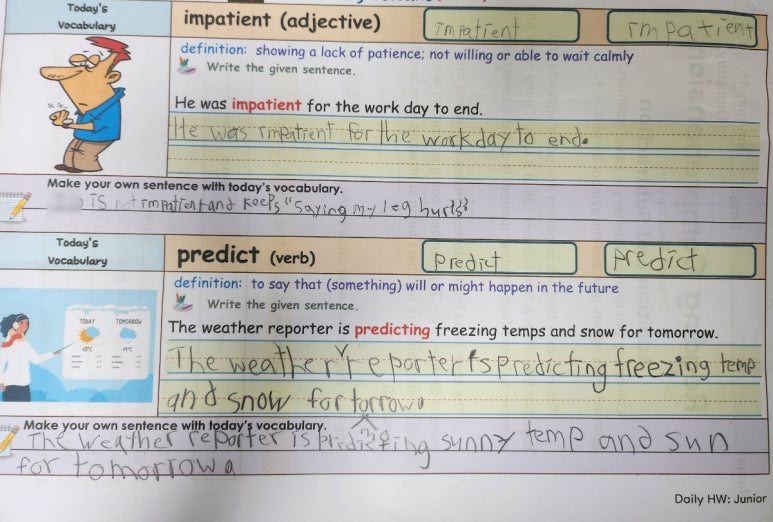 Today's
Vocabulary
impatient (adjective)
impatient
impatient
definition: showing a lack of patience; not willing or able to wait calmly
Write the given sentence.
He was impatient for the work day to end.
He was impatient for the work day to end.
Make your own sentence with today's vocabulary.
is not impatient and keeps "saying my leg hurts"
Today's
Vocabulary
predict (verb)
Predict
predict
definition: to say that (something) will or might happen in the future
Write the given sentence.
TODAY
TOMORROW
The weather reporter is predicting freezing temps and snow for tomorrow.
The weather reporter is predicting freezing temp
and snow for torrow.
Make your own sentence with today's vocabulary.
The weather reporter is predicting sunny temp and sun
for tomorrow
Daily HW: Junior